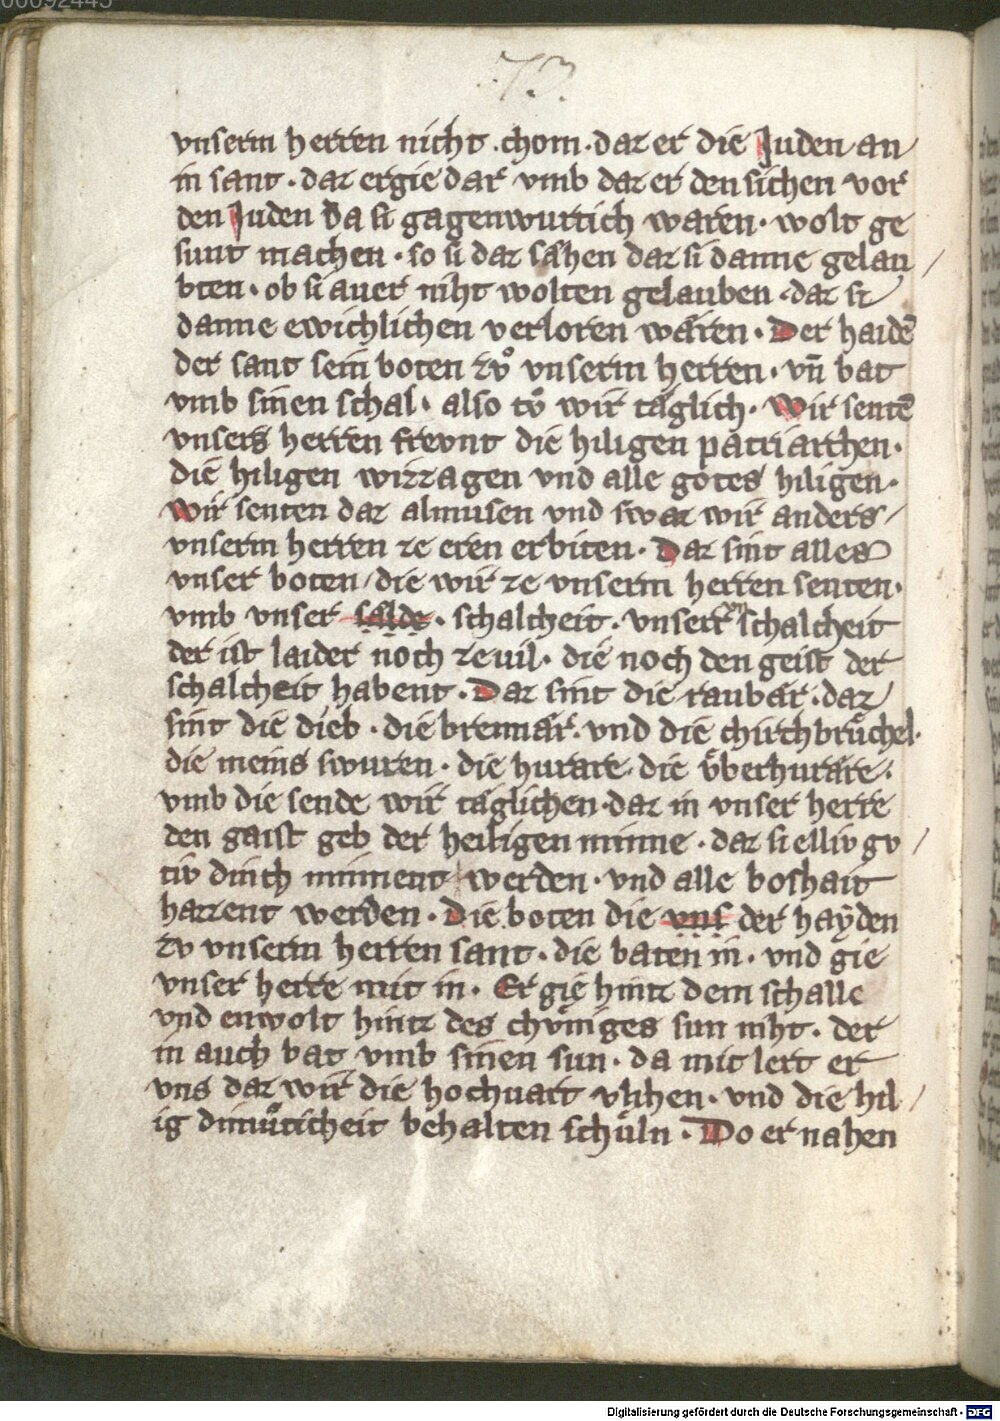 00092445
73.
vnserm herren nicht · chom · daz er die Juden an
in sant · daz ergie dar vmb daz er den sichen vor
den Juden da si gagenwurtich waren · wolt ge
sunt machen · so si daz sahen daz si danne gelau
bten · ob si auer niht wolten gelauben · daz si
danne ewichlichen verloren wären · Der haidē
der sant sein boten zvͦ vnserm herren · vn̄ bat
vmb sinen schal · also tvͦ wir täglich · Wir sentē
vnsers herren frevnt die hiligen patriarchen ·
die hiligen wizzagen vnd alle gotes hiligen ·
Wir senten daz almusen vnd swaz wir anders
vnserm herren ze eren erbiten · Daz sint alles
vnser boten / die wir ze vnserm herren senten ·
vmb vnser salde · schalcheit · vnserr schalcheit
der ist laider noch ze uil · die noch den geist der
schalcheit habent · Daz sint die raubär · daz
sint die dieb · die brennär · vnd die chirchbrüchel ·
die meins swuren · die hurare · die v̈berhuräre ·
vmb die sende wir täglichen · daz in vnser herre
den gaist geb der heiligen minne · daz si elliv gv
tiv dinch minnent werden · vnd alle boshait
hazzent werden · Die boten die vns der haẏden
zv vnserm herren sant · die baten in · vnd gie
vnser herre mit in · Er gie hintz dem schalle
vnd enwolt hintz des chv̈niges sun niht · der
in auch bat vmb sinen sun · da mit lert er
vns daz wir die hochuart vlihen · vnd die hil
ig dimüticheit behalten schüln · Do er nahen
Digitalisierung gefördert durch die Deutsche Forschungsgemeinschaft - DFG